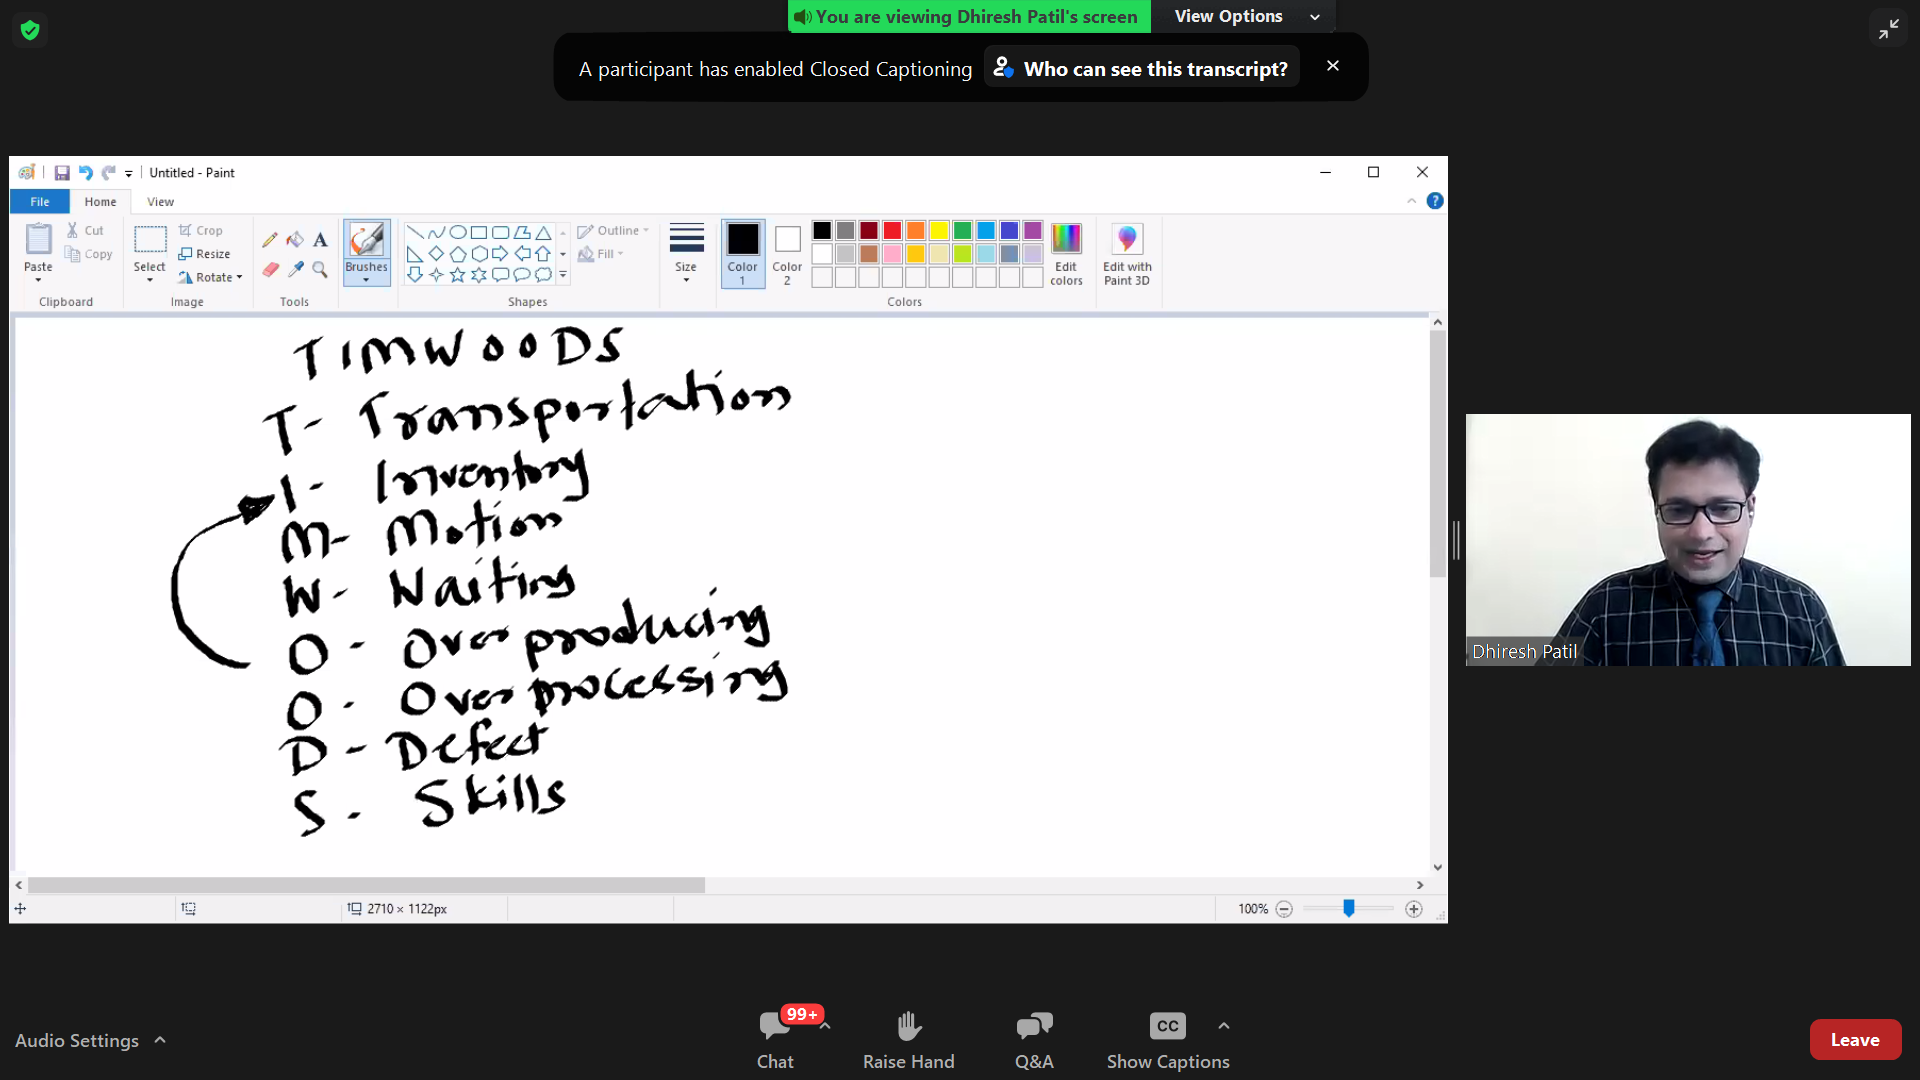 You are viewing Dhiresh Patil's screen View Options
A participant has enabled Closed Captioning Who can see this transcript?
Untitled - Paint
File Home View
Paste Cut Copy Clipboard
Select Crop Resize Rotate Image
Tools
Brushes
Shapes Outline Fill
Size
Color 1 Color 2 Colors Edit colors
Edit with Paint 3D
TIMWOODS
T- Transportation
I- Inventory
M- Motion
W- Waiting
O- Over producing
O- Over processing
D- Defect
S- Skills
2710 × 1122px 100%
Dhiresh Patil
Audio Settings
99+
Chat Raise Hand Q&A CC Show Captions
Leave